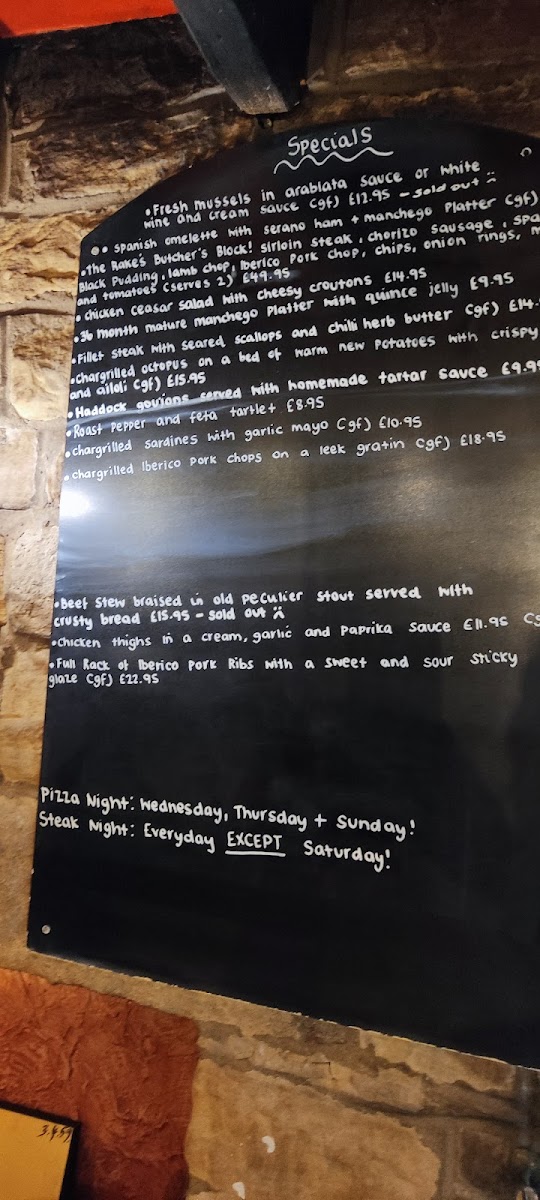 Specials
• Fresh mussels in arablata sauce or white
wine and cream sauce (gf) £12.95 - sold out
• Spanish omelette with serano ham + manchego Platter (gf)
• The Rake's Butcher's Block! Sirloin Steak, chorizo sausage,
Black Pudding, lamb chop, Iberico Pork chop, chips, onion rings,
and tomatoes (serves 2) £49.95
• chicken ceasar salad with cheesy croutons £14.95
• 36 month mature manchego Platter with quince jelly £9.95
• Fillet steak with seared scallops and chilli herb butter (gf)
• chargrilled octopus on a bed of warm new potatoes with crispy
and ailoli (gf) £15.95
• Haddock goujons served with homemade tartar sauce
• Roast Pepper and feta tartlet £8.95
• chargrilled sardines with garlic mayo (gf) £10.95
• chargrilled Iberico Pork chops on a leek gratin (gf) £18.95
• Beef Stew braised in old peculier stout served with
crusty bread £15.95 - sold out
• Chicken thighs in a cream, garlic and Paprika sauce £11.95
• Full Rack of Iberico Pork Ribs with a sweet and sour sticky
glaze (gf) £22.95
Pizza Night: Wednesday, Thursday + Sunday!
Steak Night: Everyday EXCEPT Saturday!